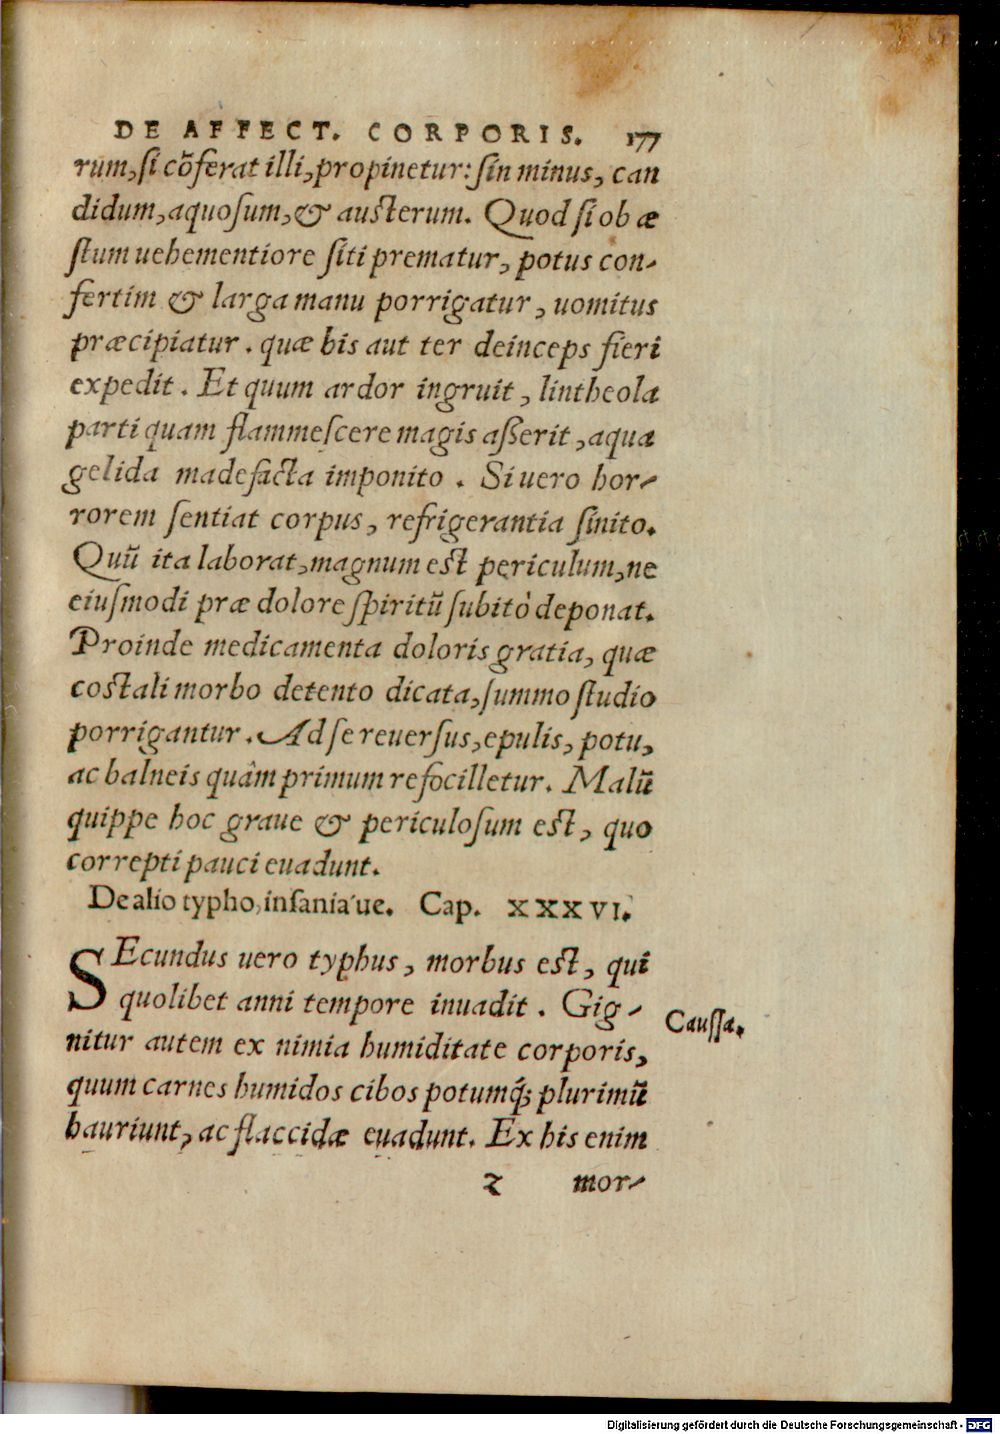 DE AFFECT. CORPORIS. 177
rum, ſi cõferat illi, propinetur: ſin minus, can
didum, aquoſum, & auſterum. Quod ſi ob æ
ſtum uehementiore ſiti prematur, potus con-
fertim & larga manu porrigatur, uomitus
præcipiatur. quæ bis aut ter deinceps fieri
expedit. Et quum ardor ingruit, lintheola
parti quam flammeſcere magis aſſerit, aqua
gelida madefacta imponito. Si uero hor-
rorem ſentiat corpus, refrigerantia ſinito.
Quũ ita laborat, magnum eſt periculum, ne
eiuſmodi præ dolore ſpiritũ ſubitò deponat.
Proinde medicamenta doloris gratia, quæ
coſtali morbo detento dicata, ſummo ſtudio
porrigantur. Ad ſe reuerſus, epulis, potu,
ac balneis quâm primum refocilletur. Malũ
quippe hoc graue & periculoſum eſt, quo
correpti pauci euadunt.
De alio typho, inſania´ue. Cap. XXXVI.
SEcundus uero typhus, morbus eſt, qui
quolibet anni tempore inuadit. Gig-
Cauſſa.
nitur autem ex nimia humiditate corporis,
quum carnes humidos cibos potumq́; plurimũ
hauriunt, ac flaccidæ euadunt. Ex his enim
z mor-
Digitalisierung gefördert durch die Deutsche Forschungsgemeinschaft - DFG